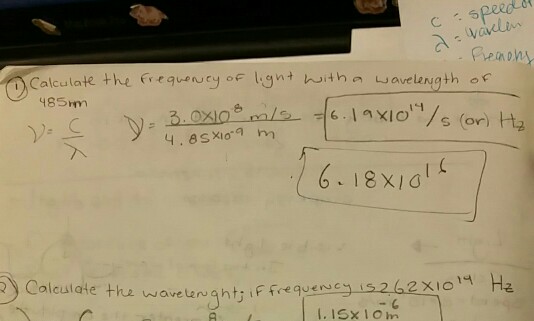 c = speed
λ = wavelen
① Calculate the frequency of light with a wavelength of
485nm
ν = c/λ ν = 3.0x10⁸ m/s / 4.85x10⁻⁹ m = 6.19x10¹⁴/s (or) Hz
6.18x10¹⁶
2) Calculate the wavelenght; if frequency is 2.62x10¹⁴ Hz
1.15x10⁻⁶m